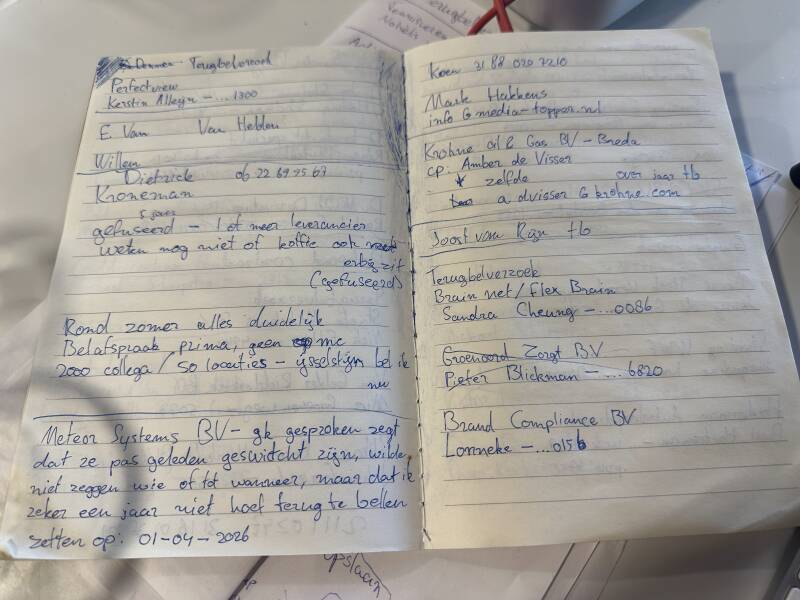 Terugbelverzoek
Perfectview
Kerstin Alleijn - ...1300
E. Van Van Helden
Willem
Dietrick 06 22 69 95 67
Kroneman
5 jaar
gefuseerd - 1 ot meer leverancier
weten nog niet of koffie ook
erbij zit
(gefuseerd)
Rond zomer alles duidelijk
Belafspraak prima, geen mc
2000 collega / 50 locaties - ijsselstijn bel ik
nu
Meteor Systems BV - gk gesproken zegt
dat ze pas geleden geswitcht zijn, wilde
niet zeggen wie of tot wanneer, maar dat ik
zeker een jaar niet hoef terug te bellen
zetten op: 01-04-2026
Koen 31 88 020 7210
Mark Hakkens
info @ media-topper.nl
Krohne oil & Gas BV - Breda
cp: Amber de Visser
zelfde over jaar tb
a dvisser @ krohne.com
Joost van Rijn tb
Terugbelverzoek
Brain net / Flex Brain
Sandra Cheung - ...0086
Groenoord Zorgt BV
Pieter Blickman - ...6820
Brand Compliance BV
Lonneke - ...0156
opslaan